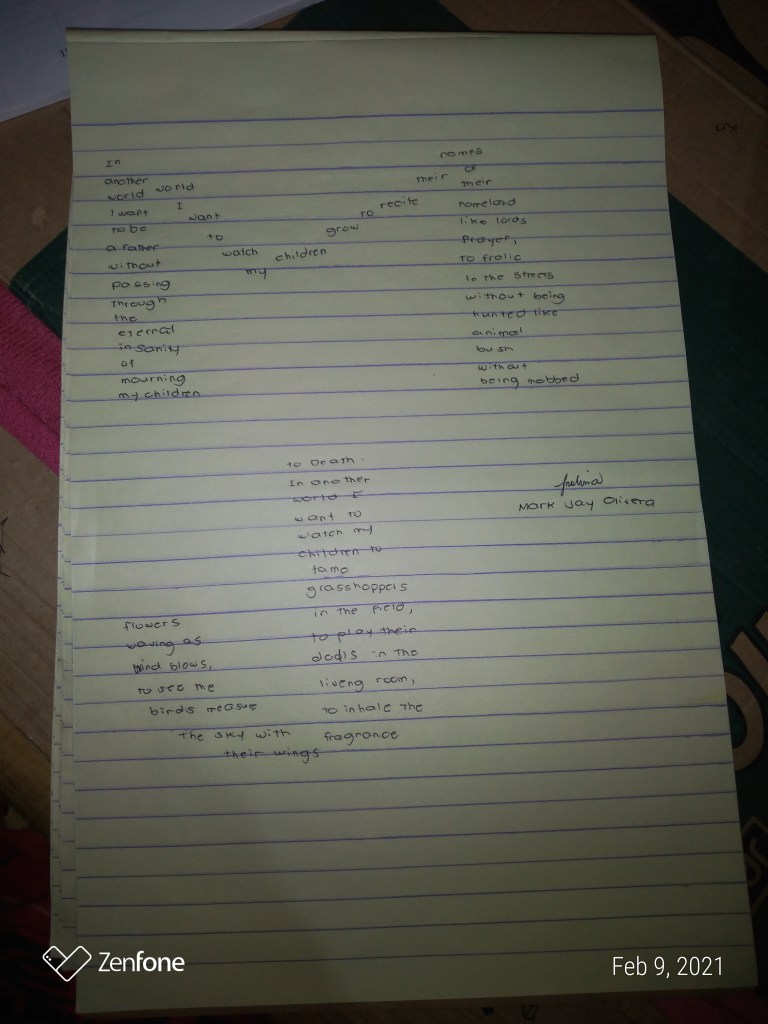 In
another
world
I want
to be
a father
without
passing
through
the
eternal
insanity
of
mourning
my children
world
I
want
to
watch
my
children
grow
to
recite
their
names
of
their
homeland
like lords
Prayer,
To frolic
In the streets
without being
hunted like
animal
bush
without
being robbed
to Death.
In another
world I
want to
watch my
children to
tame
grasshoppers
in the field,
to play their
dodls in the
liveng room,
to inhale the
fragrance
flowers
waving as
wind blows,
to see the
birds measure
The sky with
their wings
Mark Jay Olivera
Zenfone
Feb 9, 2021